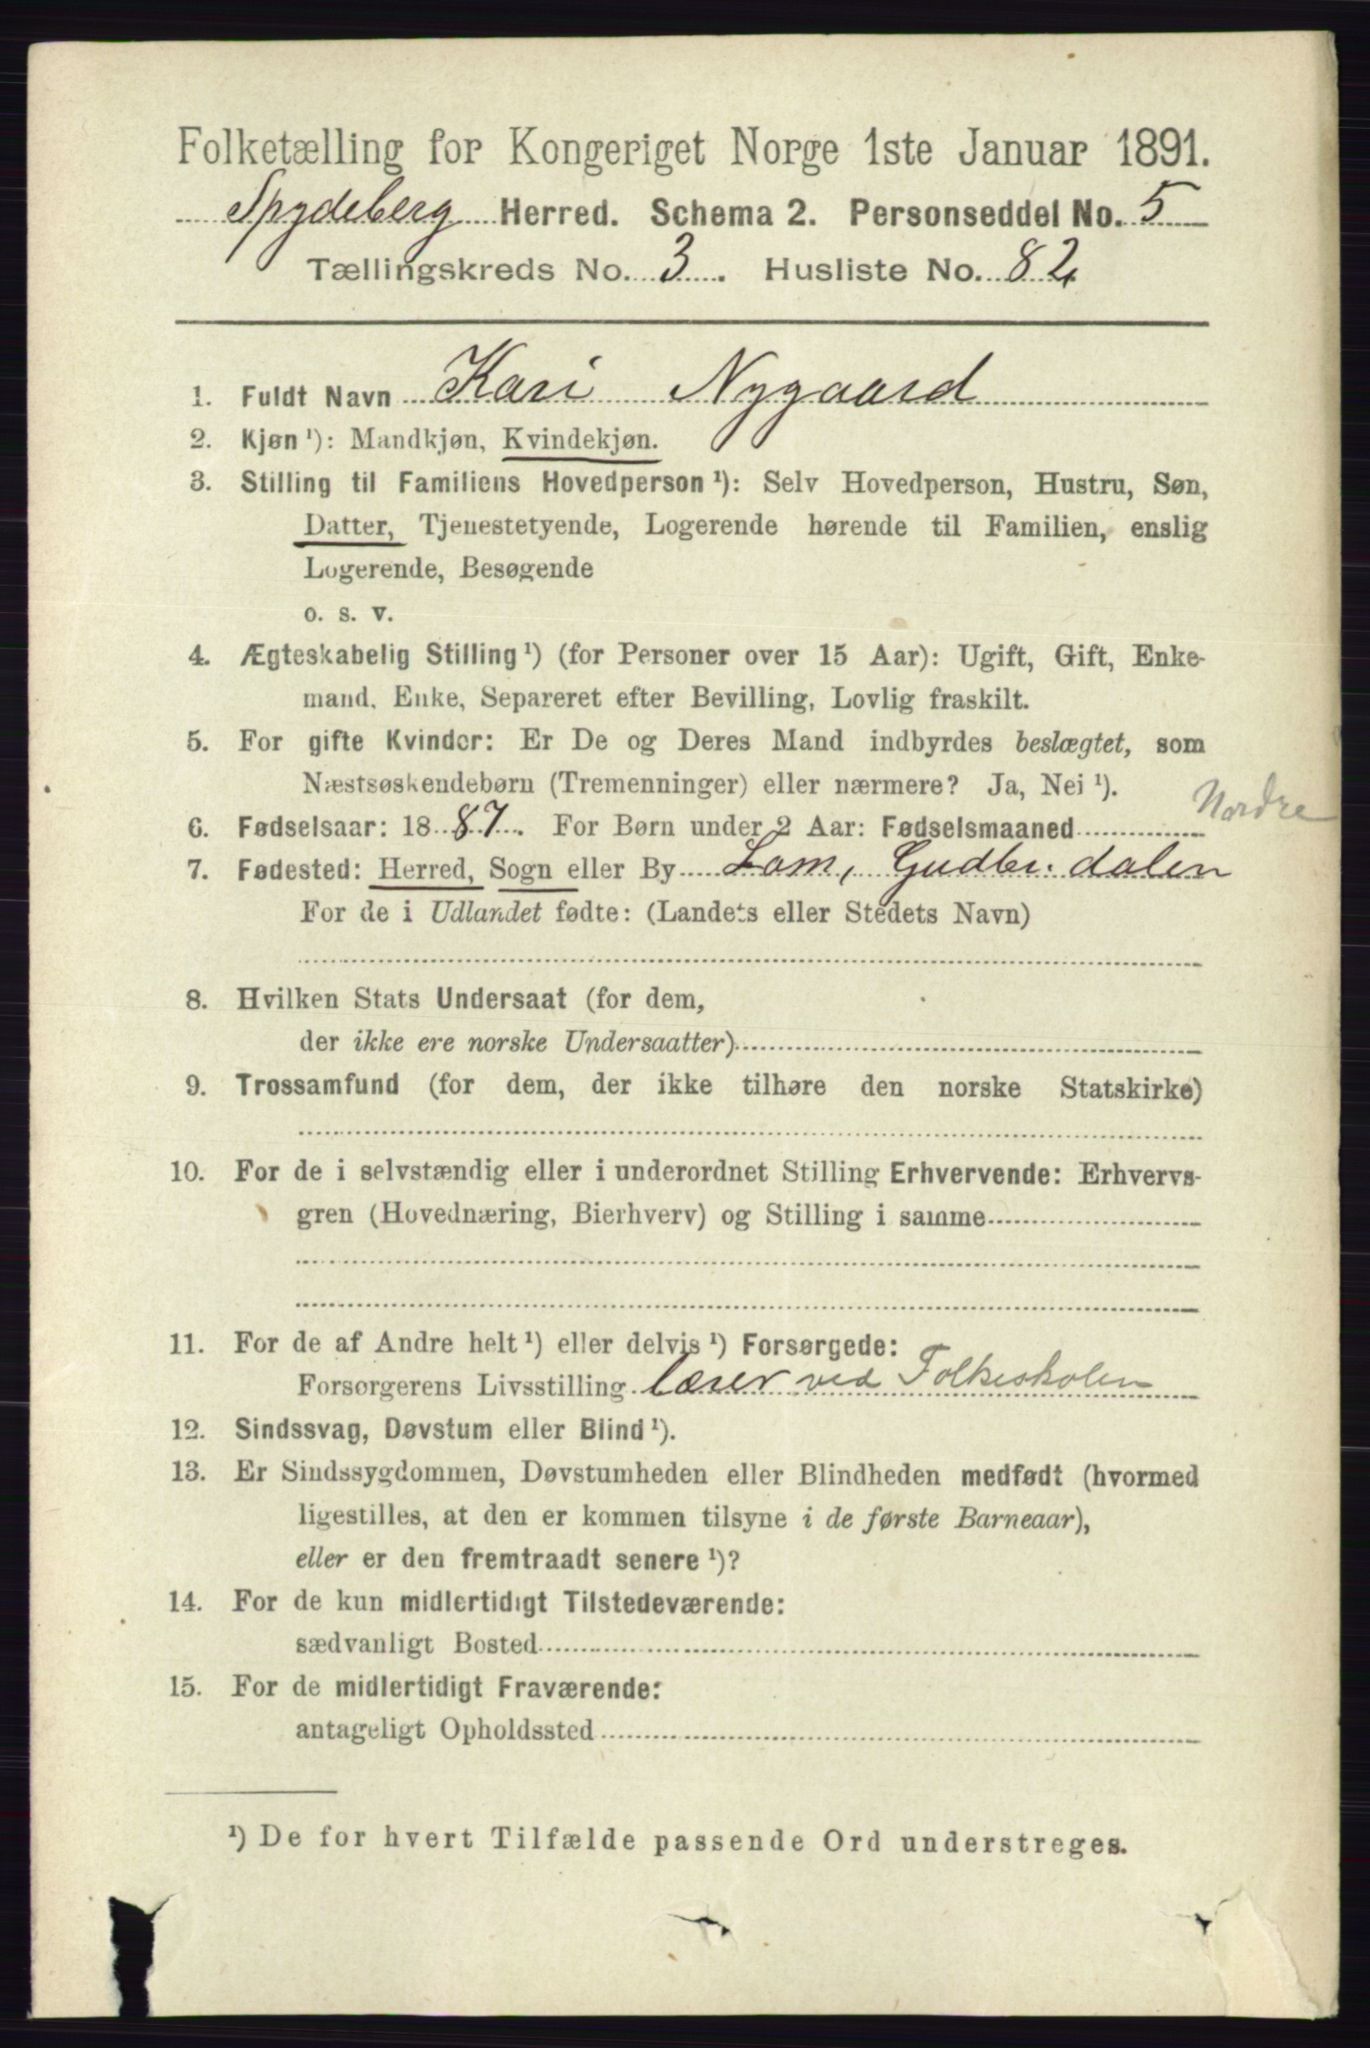 Folketælling for Kongeriget Norge 1ste Januar 1891.
Spydeberg Herred. Schema 2. Personseddel No. 5
Tællingskreds No. 3. Husliste No. 82
1. Fuldt Navn Kari Nygaard
2. Kjøn ¹): Mandkjøn, Kvindekjøn.
3. Stilling til Familiens Hovedperson ¹): Selv Hovedperson, Hustru, Søn,
Datter, Tjenestetyende, Logerende hørende til Familien, enslig
Logerende, Besøgende
o. s. v.
4. Ægteskabelig Stilling ¹) (for Personer over 15 Aar): Ugift, Gift, Enke-
mand, Enke, Separeret efter Bevilling, Lovlig fraskilt.
5. For gifte Kvinder: Er De og Deres Mand indbyrdes beslægtet, som
Næstsøskendebørn (Tremenninger) eller nærmere? Ja, Nei ¹).
Nordre
6. Fødselsaar: 1887. For Børn under 2 Aar: Fødselsmaaned
7. Fødested: Herred, Sogn eller By Lom, Gudbr. dalen
For de i Udlandet fødte: (Landets eller Stedets Navn)
8. Hvilken Stats Undersaat (for dem,
der ikke ere norske Undersaatter)
9. Trossamfund (for dem, der ikke tilhøre den norske Statskirke)
10. For de i selvstændig eller i underordnet Stilling Erhvervende: Erhvervs-
gren (Hovednæring, Bierhverv) og Stilling i samme
11. For de af Andre helt ¹) eller delvis ¹) Forsørgede:
Forsørgerens Livsstilling lærer ved Folkeskolen
12. Sindssvag, Døvstum eller Blind ¹).
13. Er Sindssygdommen, Døvstumheden eller Blindheden medfødt (hvormed
ligestilles, at den er kommen tilsyne i de første Barneaar),
eller er den fremtraadt senere ¹)?
14. For de kun midlertidigt Tilstedeværende:
sædvanligt Bosted
15. For de midlertidigt Fraværende:
antageligt Opholdssted
¹) De for hvert Tilfælde passende Ord understreges.